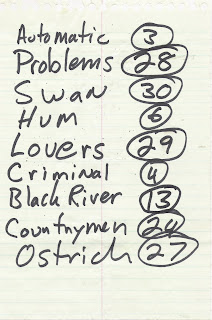 Automatic 3
Problems 28
Swan 30
Hum 6
Lovers 29
Criminal 4
Black River 13
Countrymen 24
Ostrich 27